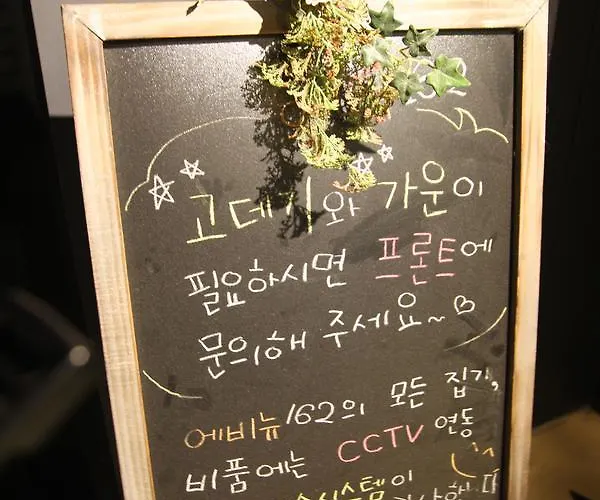 고데기와 가운이
필요하시면 프론트에
문의해 주세요~♡
에비뉴162의 모든 집기,
비품에는 CCTV 연동